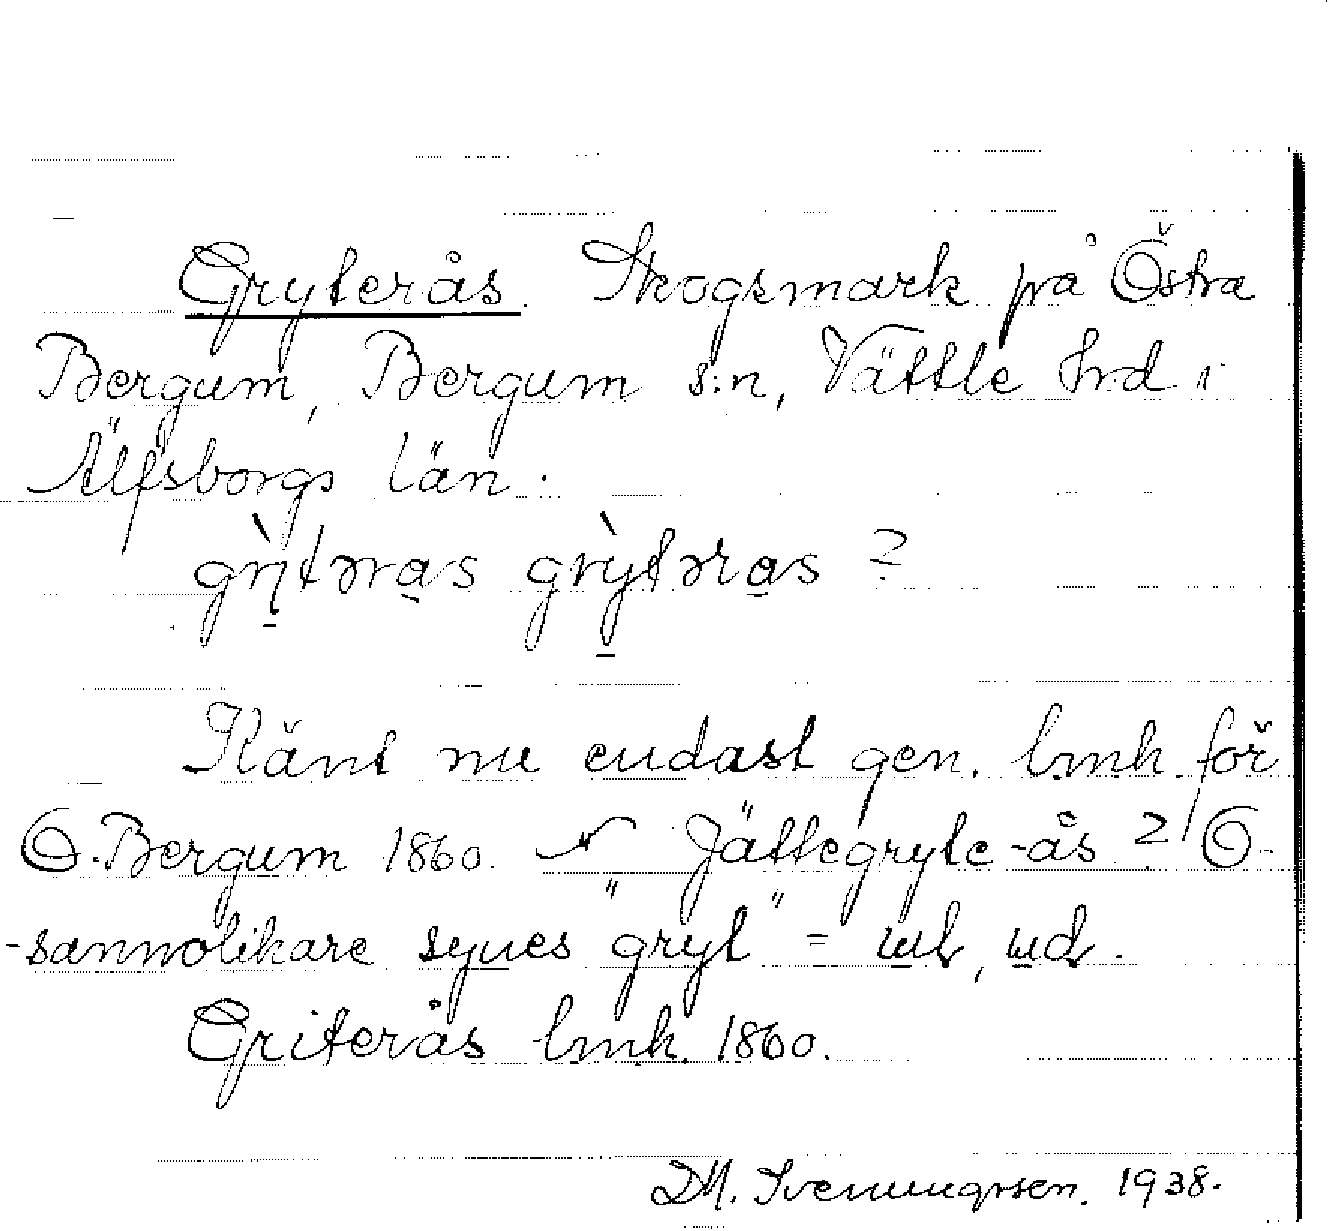 Gryterås. Skogsmark på Östra
Bergum, Bergum s:n, Vättle hrd i
Älfsborgs län.
grı̀təras grỳtəras ?
Känt nu endast gen. lmk för
Ö. Bergum 1860. Jättegryte-ås ? O-
-sannolikare synes "gryt" =
Griterås lmk. 1860.
D.M. Svenungssen. 1938.